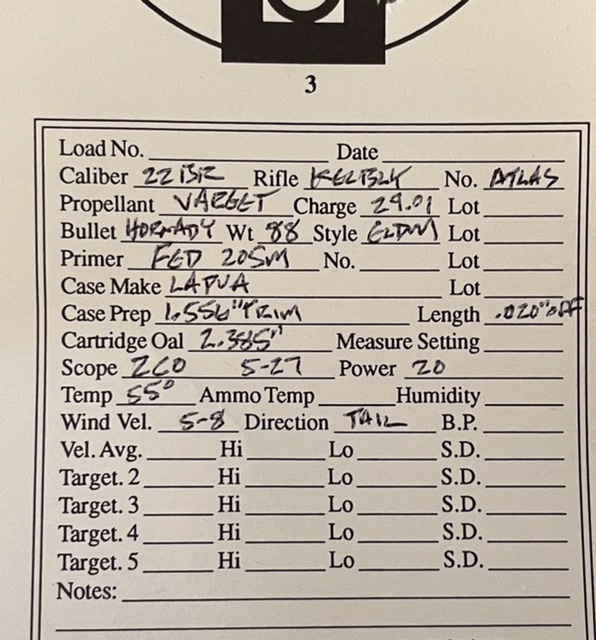 3
Load No. Date
Caliber 22 BR Rifle KELBLY No. ATLAS
Propellant VARGET Charge 29.01 Lot
Bullet HORNADY Wt 88 Style ELDM Lot
Primer FED 205M No. Lot
Case Make LAPUA Lot
Case Prep 1.556" TRIM Length .020" OFF
Cartridge Oal 2.385" Measure Setting
Scope ZCO 5-27 Power 20
Temp 55° Ammo Temp Humidity
Wind Vel. 5-8 Direction TAIL B.P.
Vel. Avg. Hi Lo S.D.
Target. 2 Hi Lo S.D.
Target. 3 Hi Lo S.D.
Target. 4 Hi Lo S.D.
Target. 5 Hi Lo S.D.
Notes: